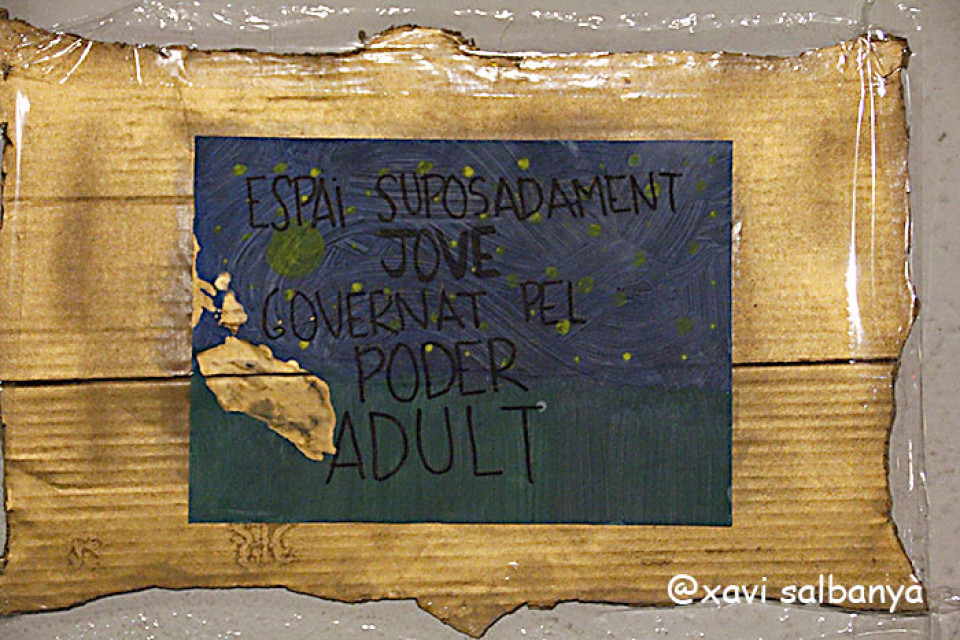 ESPAi SUPOSADAMENT
JOVE
GOVERNAT PEL
PODER
ADULT
@xavi salbanyà